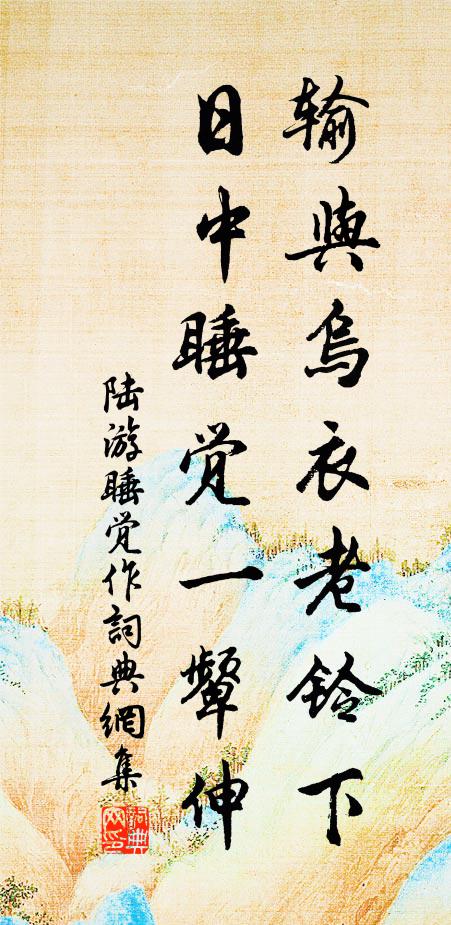 输與烏衣老鈴下
日中睡觉一颦伸
陆游睡觉作詞典網集
詞典网印